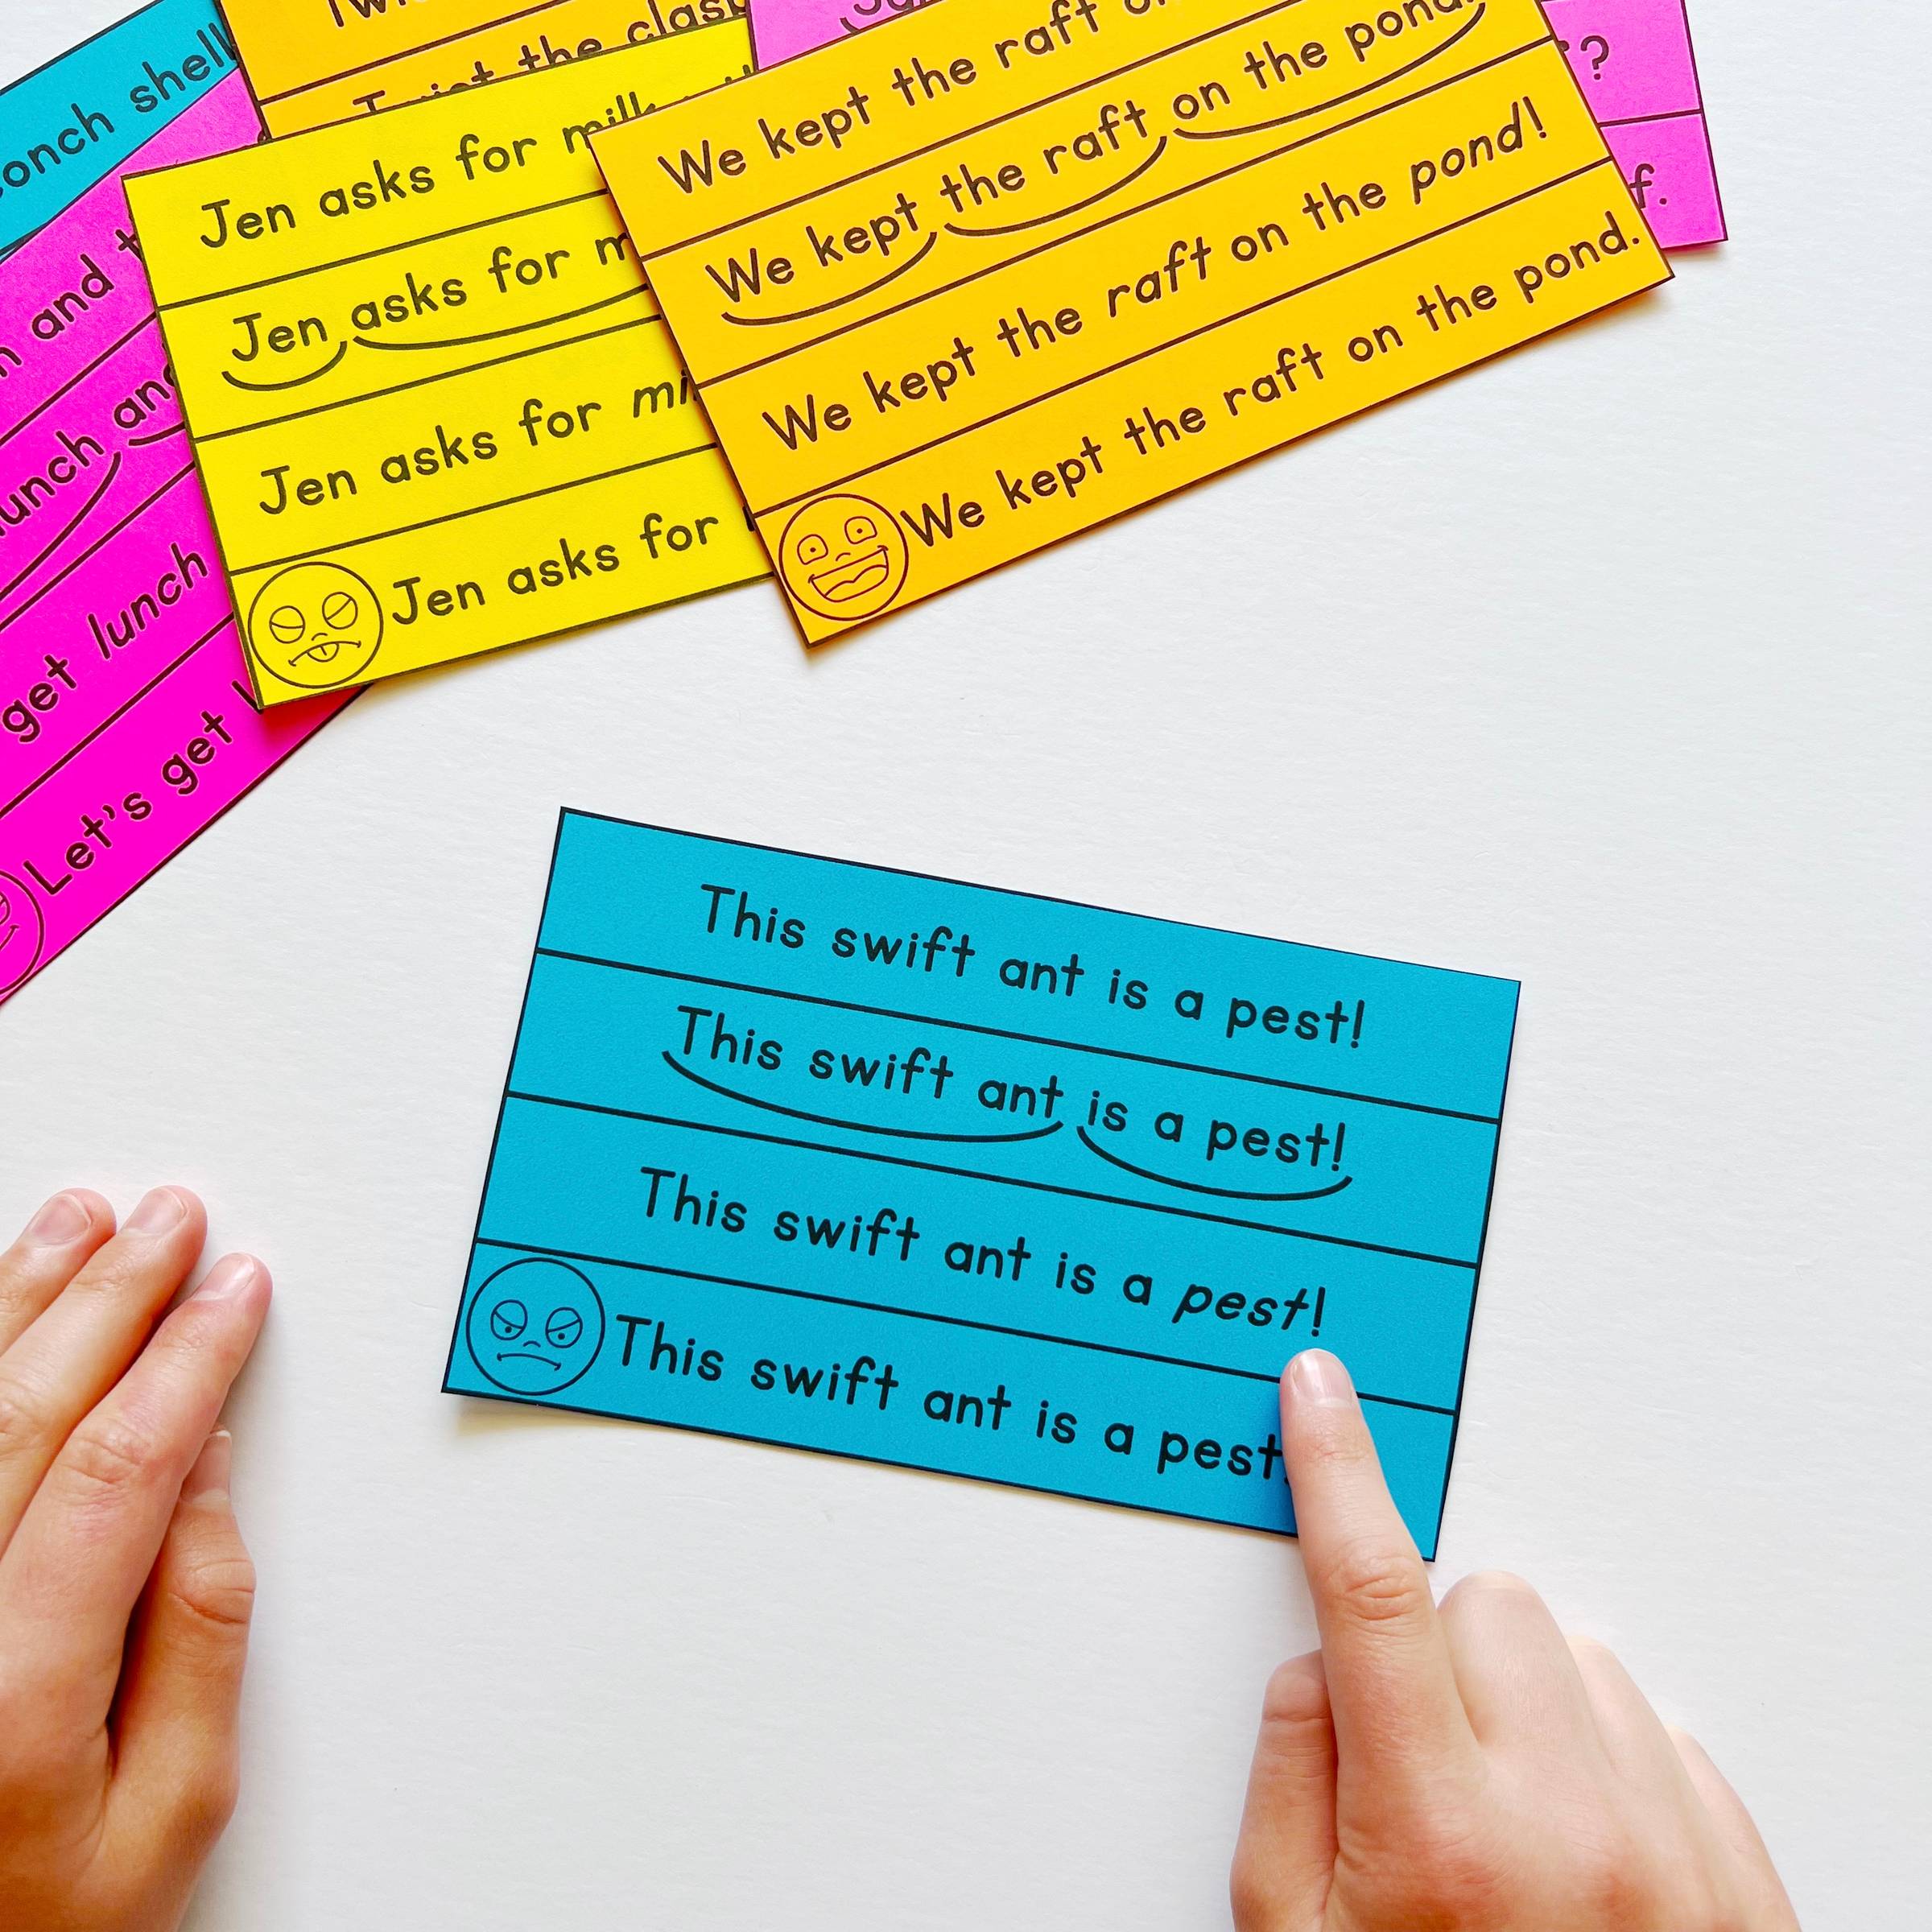 onch shell
and
unch and
get lunch
Let's get
the clasp
?
f.
Jen asks for milk
Jen asks for
Jen asks for
Jen asks for
We kept the raft
We kept the raft on the pond.
We kept the raft on the pond!
We kept the raft on the pond.
This swift ant is a pest!
This swift ant is a pest!
This swift ant is a pest!
This swift ant is a pest